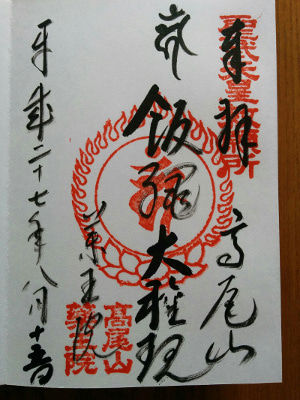 聖武天皇勅願所
奉拝 高尾山
飯縄大権現
薬王院
髙尾山
藥王院
平成二十七年八月十